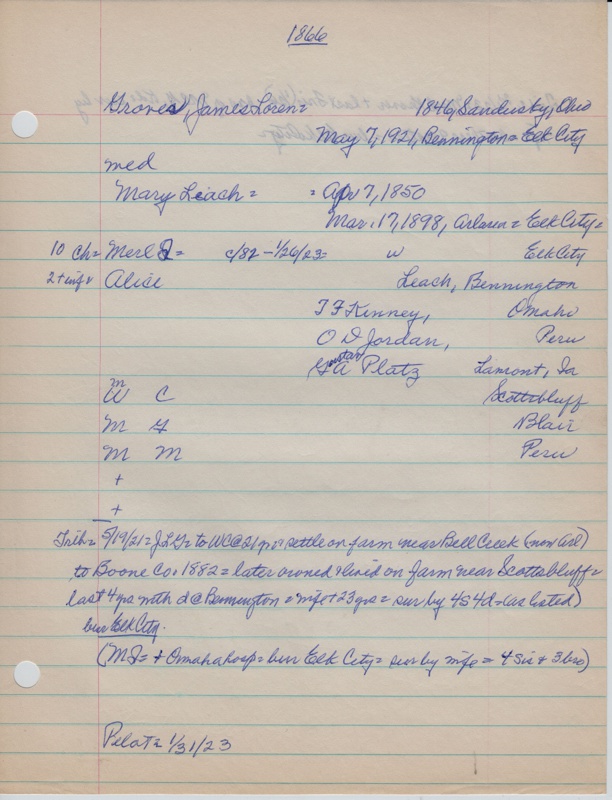 1866
Groves, James Loren = 1846, Sandusky, Ohio
May 7, 1921, Bennington = Elk City
med
Mary Leach = = Apr 7, 1850
Mar. 17, 1898, Arlin = Elk City =
10 Ch = Merl J = c/82 - 1/26/23 = w Elk City
2 + inf Alice Leach, Bennington
T F Kinney, Omaha
O D Jordan, Peru
Gustav
G A Platz Lamont, Ia
m
W C Scottsbluff
M G Blair
M M Peru
+
+
Trib = 5/19/21 = J L G = to WC @ 21 yrs settle on farm near Bell Creek (now Arl)
to Boone Co. 1882 = later owned & lived on farm near Scottsbluff =
last 4 yrs with d @ Bennington = wife + 23 yrs = sur by 4S 4d = (as listed)
bur Elk City.
(MJ = + Omaha hosp = bur Elk City = sur by wife = 4 sis + 3 bro)
Pilot = 1/31/23